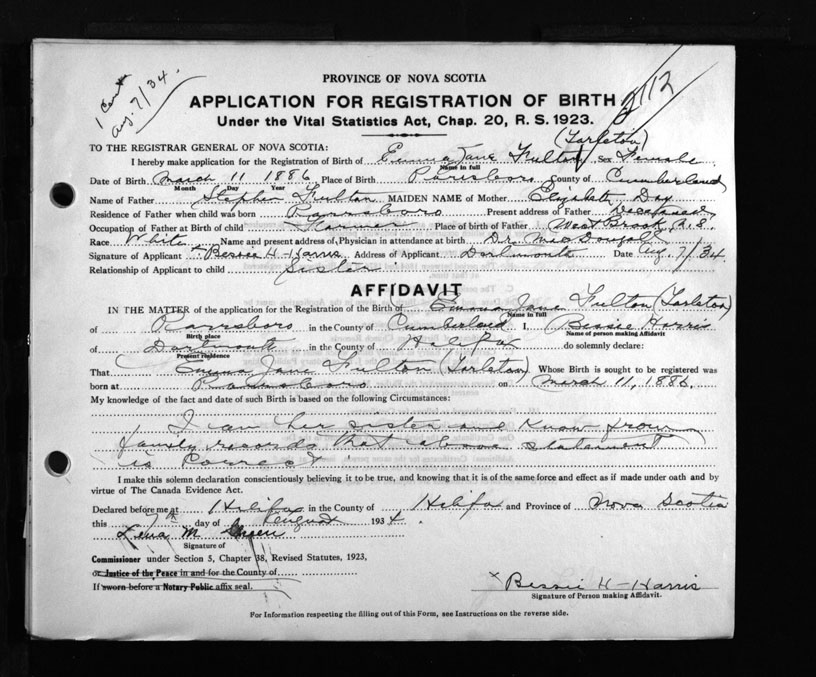 1 Cert
Aug. 7/34.
PROVINCE OF NOVA SCOTIA
APPLICATION FOR REGISTRATION OF BIRTH
Under the Vital Statistics Act, Chap. 20, R. S. 1923.
TO THE REGISTRAR GENERAL OF NOVA SCOTIA:
(Tarleton)
I hereby make application for the Registration of Birth of Emma Jane Fulton Sex Female
Name in full
Date of Birth March 11 1886 Place of Birth Parrsboro County of Cumberland
Month Day Year
Name of Father Stephen Fulton MAIDEN NAME of Mother Elizabeth Day
Residence of Father when child was born Parrsboro Present address of Father Deceased
Occupation of Father at Birth of child Farmer Place of birth of Father West Brook N.S.
Race White Name and present address of Physician in attendance at birth Dr. MacDougall
Signature of Applicant Bessie H-Harris Address of Applicant Dartmouth Date Aug 7/34
Relationship of Applicant to child Sister
AFFIDAVIT
IN THE MATTER of the application for the Registration of the Birth of Emma Jane Fulton (Tarleton)
Name in full
of Parrsboro in the County of Cumberland I, Bessie Harris
Birth place Name of person making Affidavit
of Dartmouth in the County of Halifax do solemnly declare:
Present residence
That Emma Jane Fulton (Tarleton) Whose Birth is sought to be registered was
born at Parrsboro on March 11, 1886.
My knowledge of the fact and date of such Birth is based on the following Circumstances:
I am her sister and know from
family records that above statement
is correct
I make this solemn declaration conscientiously believing it to be true, and knowing that it is of the same force and effect as if made under oath and by
virtue of The Canada Evidence Act.
Declared before me at Halifax in the County of Halifax and Province of Nova Scotia
this 7th day of August 1934.
Lena M.
Signature of
Commissioner under Section 5, Chapter 38, Revised Statutes, 1923,
or Justice of the Peace in and for the County of
If sworn before a Notary Public affix seal.
x Bessie H-Harris
Signature of Person making Affidavit.
For Information respecting the filling out of this Form, see Instructions on the reverse side.